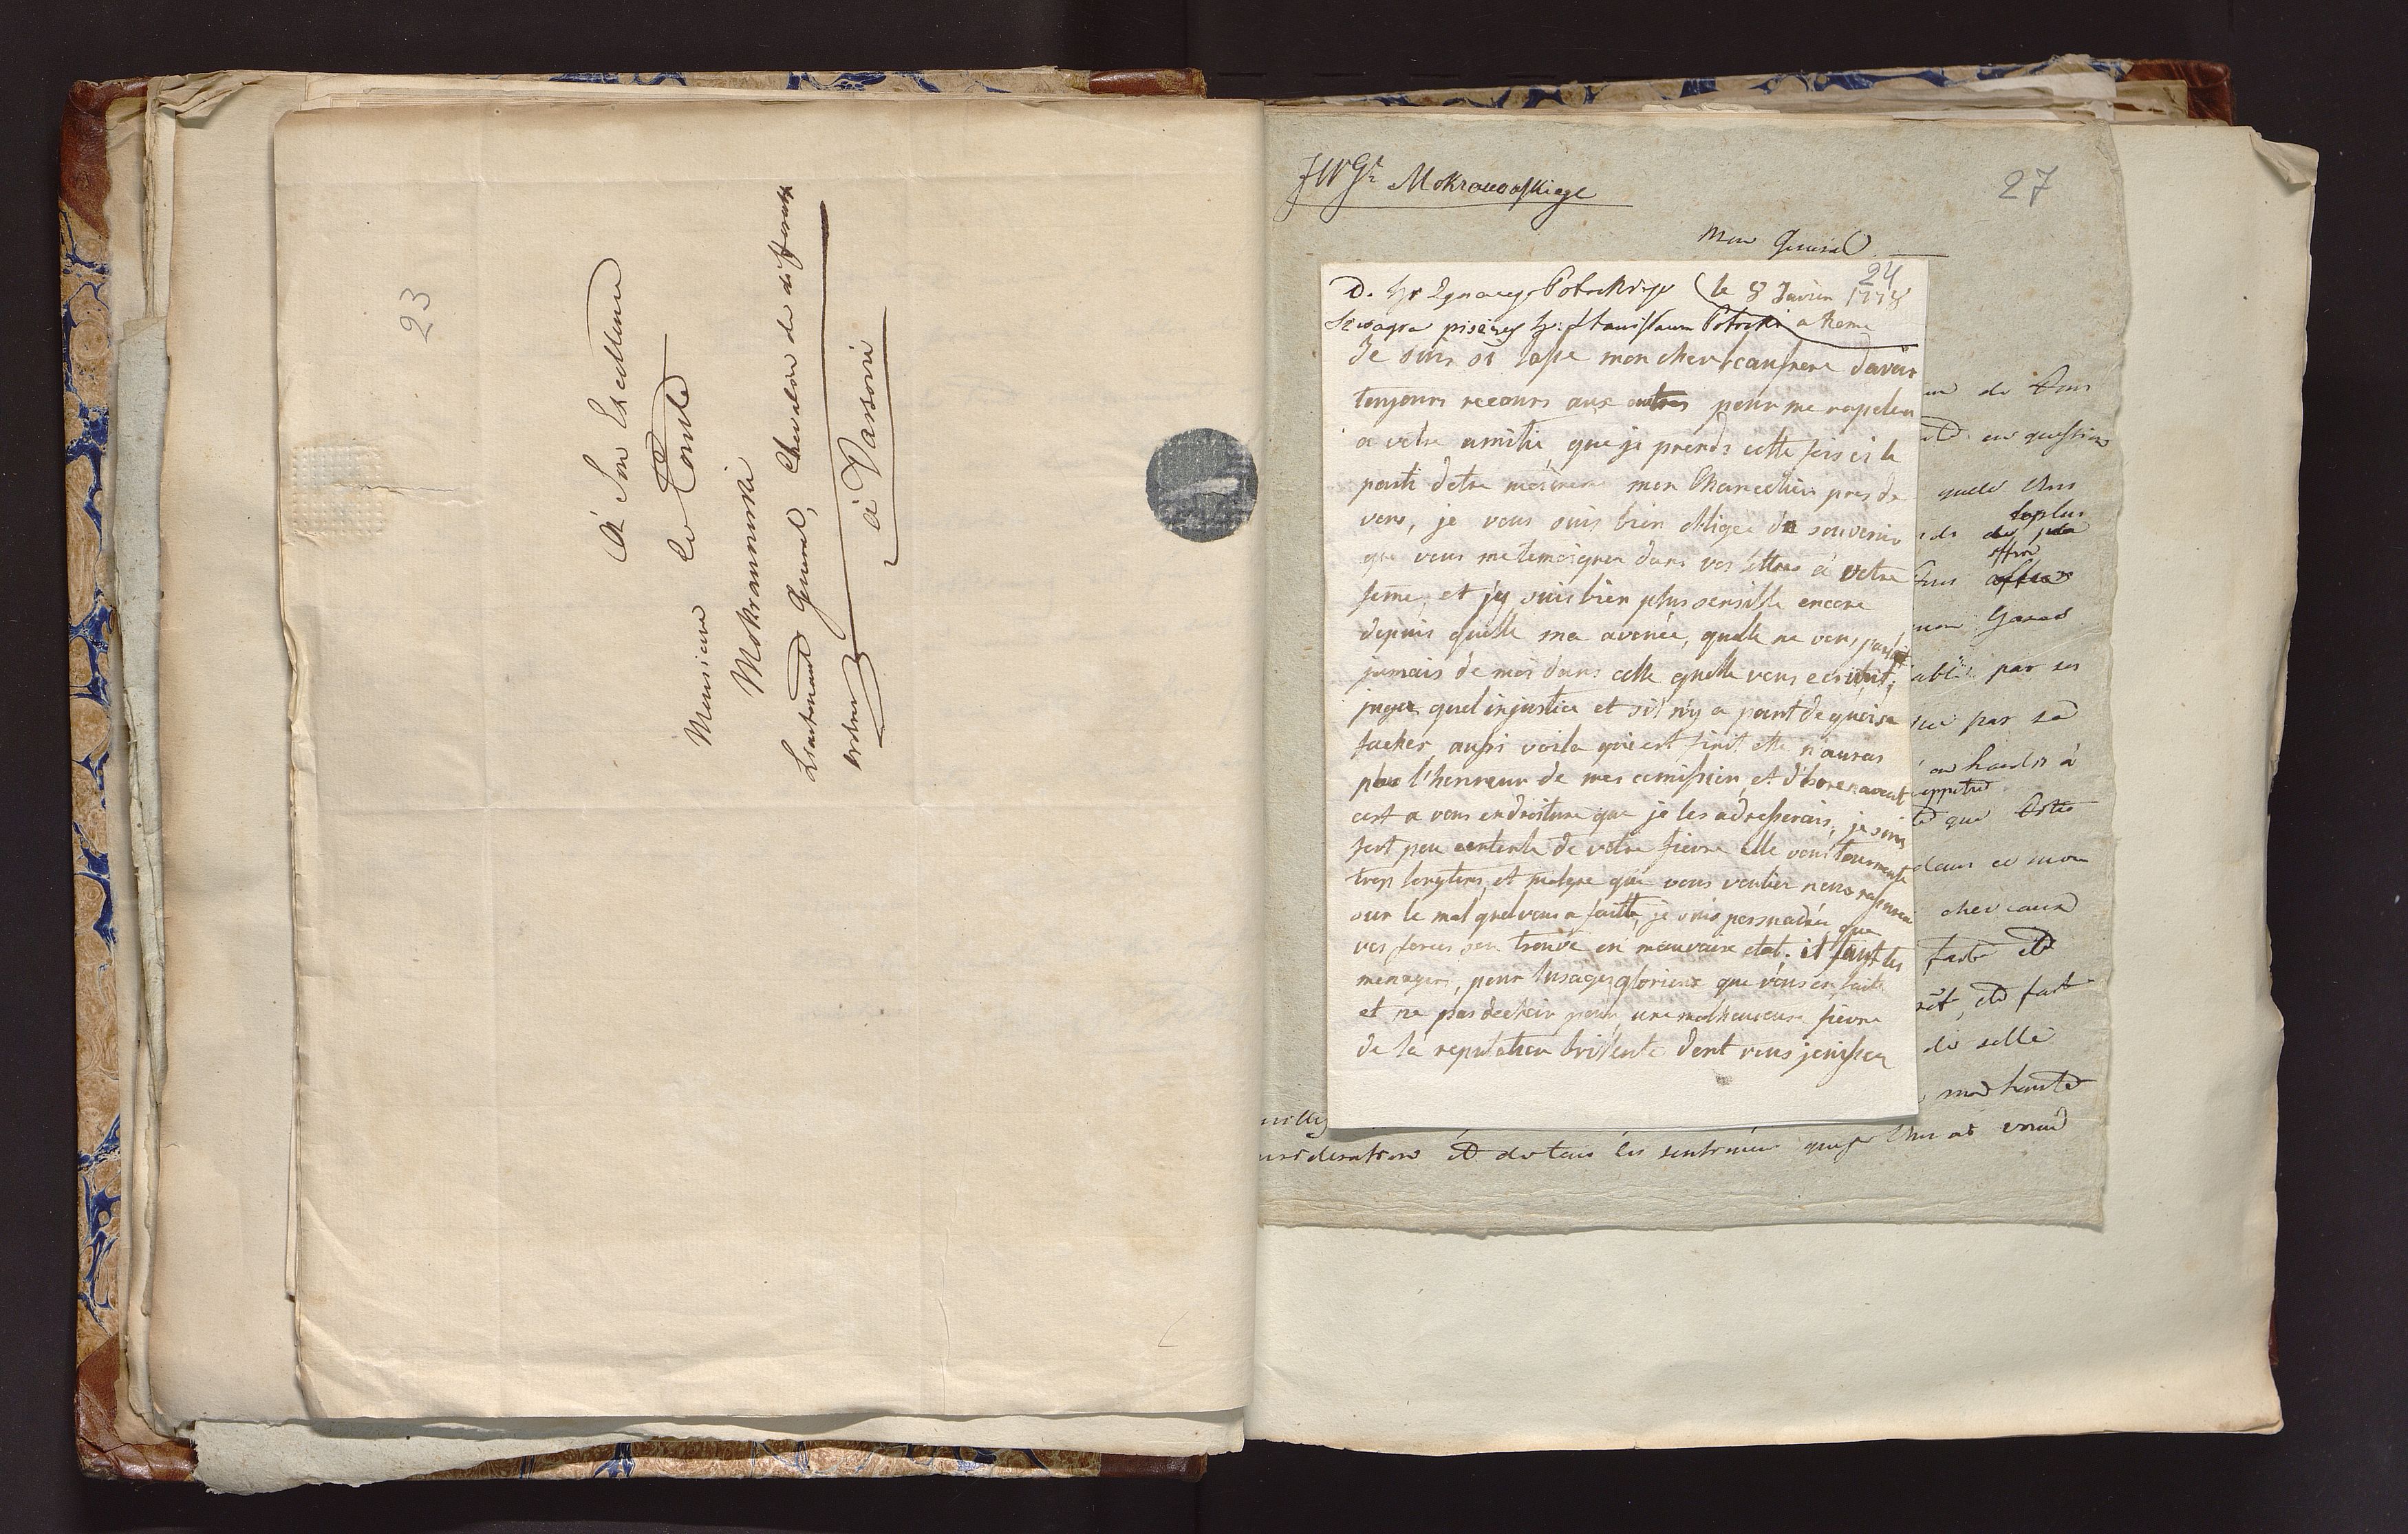 23
A Son Excellence
Monsieur le Comte
Mokranowski
Lieutenant General, Chevalier de differents
ordres
à Varsovie
JWGr Mokronowskiego
27
Mon General
24
D. hr Ignacego Potockiego le 8 Janvier 1778
Szwagra pisarz hr. Stanisław Potocki a Rome
Je suis si lasse mon cher beaufrere d'avoir
toujours recours aux autres pour me rapeler
a votre amitie que je prends cette fois ci le
parti d'etre moi meme mon Chancelier pres de
vous, je vous suis bien obligée du souvenir
que vous me temoignez dans vos lettres à votre
feme, et j'y suis bien plus sensible encore
depuis qu'elle ma avouée, quelle ne vous parloit
jamais de moi dans celle quelle vous ecrivoit;
juger quel injustice et s'il n'y a point de quoi se
facher, aussi voila qui est finit elle n'auras
plus l'honneur de mes comission, et d'horenavant
cest a vous endroiture que je les adresserais, je suis
fort peu contente de votre fievre elle vous tourmente
trop longtems, et malgre que vous voulier nous rassurer
sur le mal quel vous a faitte, je suis persuadée que
vos forces sen trouve en mauvaise etat; il faut les
menager, pour lusages glorieux que vous en faite
et ne pas dechoir pour une malheureuse fievre
de la reputation brillente dont vous jouissez
de Vous
en question
quelle Vous
le plus
offre
mon Grand
par ses
par sa
à
que
dans ce mon
chevaux
faite et
et fait
de selle
ma haute
consideration et de tous les sentimens que je Vous ai voué